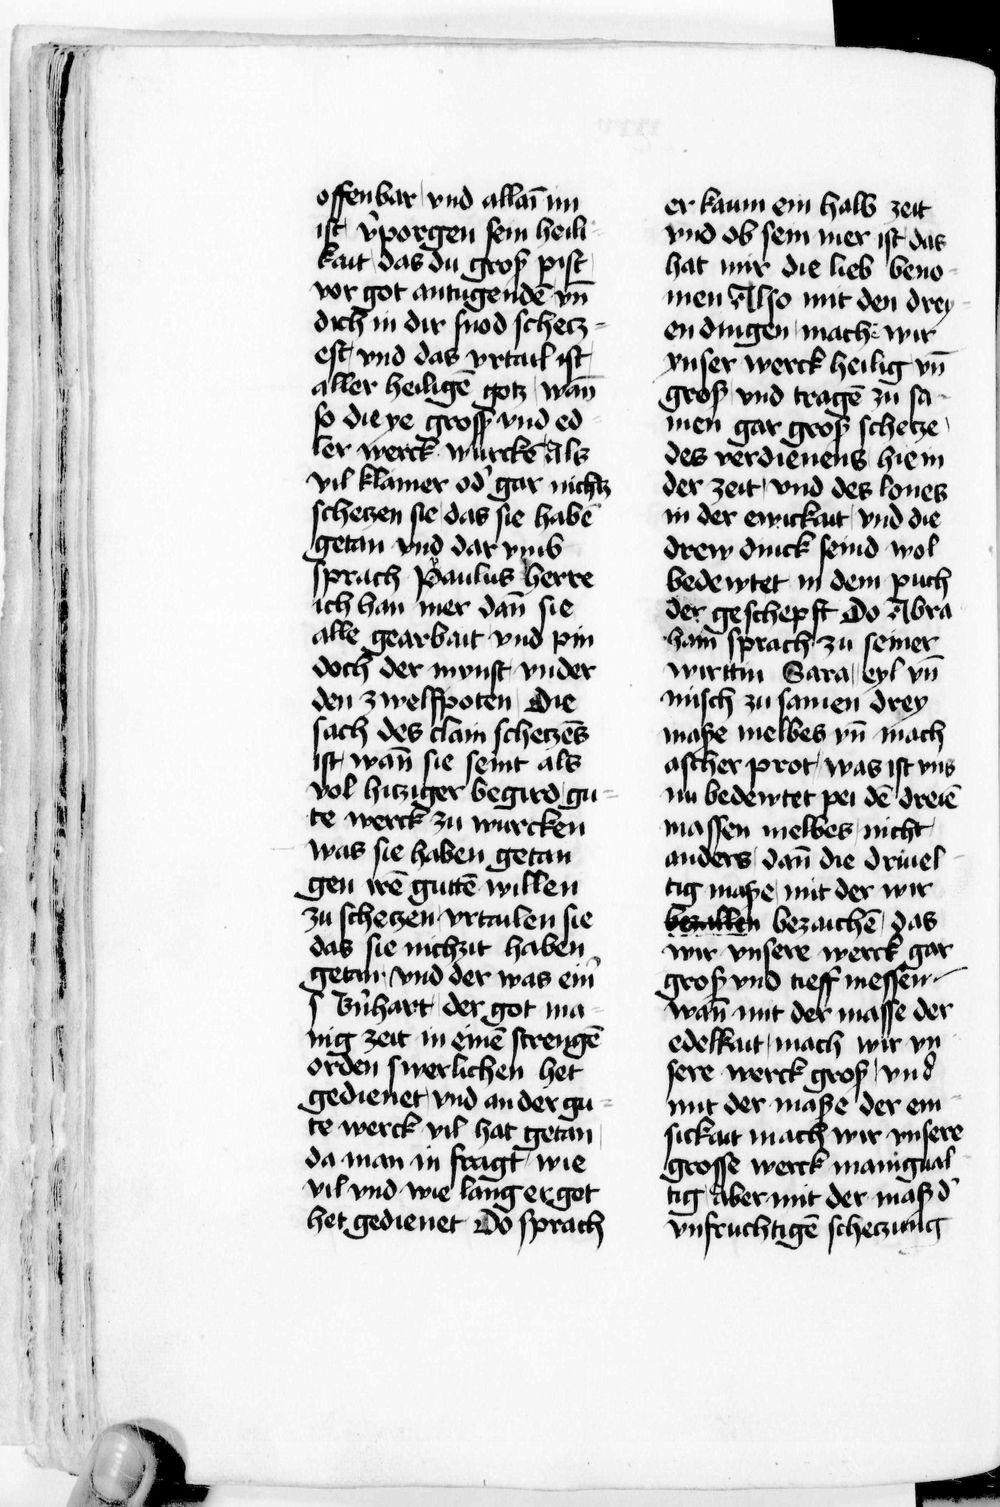 offenbar vnd allaī im
ist v̓porgen sein heili-
kait das du groß pist
vor got antugendē vn̄
dich in dir snod schecz=
est vnd das vrtail ist
aller heiligē gotz wan̄
so die ye grossz vnd ed
ler werck wurckē Als
vil klainer od̓ gar nichtz
scheczen sie das sie habē
getan vnd dar vmb
sprach Paulus herre
ich han mer dan̄ sie
alle gearbait vnd pin
doch der mynst vnder
den zwelfpoten Die
sach des clain scheczēs
ist wan̄ sie seint als
vol hicziger begird gu=
te werck zu wurcken
was sie haben getan
gen irē guttē willen
zu scheczen vrtailen sie
das sie nichzit haben
getan vnd der was ein̓
s Bn̓hart der got ma-
nig zeit in einē strengē
orden swerlichen het
gedienet vnd ander gu=
te werck vil hat getan
da man in fragt wie
vil vnd wie lang er got
het gedienet Do sprach
er kaum ein halb zeit
vnd ob sein mer ist das
hat mir die lieb beno-
men Also mit den drey-
en dingen mach wir
vnser werck heilig vn̄
groß vnd tragē zu sa-
men gar groß schecze
des verdienens hie in
der zeit vnd des lones
in der ewickait vnd die
drew dinck seind wol
bedewtet in dem puch
der geschepft Do Abra
ham sprach zu seiner
wirttin Sara eyl vn̄
misch zu samen drey
maße melbes vn̄ mach
ascher prot was ist vns
nu bedewtet pei dē dreiē
massen melbes nicht
anders dan̄ die driuel-
tig maße mit der wir
bezallen bezaichē das
wir vnsere werck gar
groß vnd tieff messen
wan̄ mit der masse der
edelkait mach wir vn
sere werck groß vnd
mit der maße der em-
sickait mach wir vnsere
grosse werck manigual
tig aber mit der maß d̓
vnfruchtigē scheczung